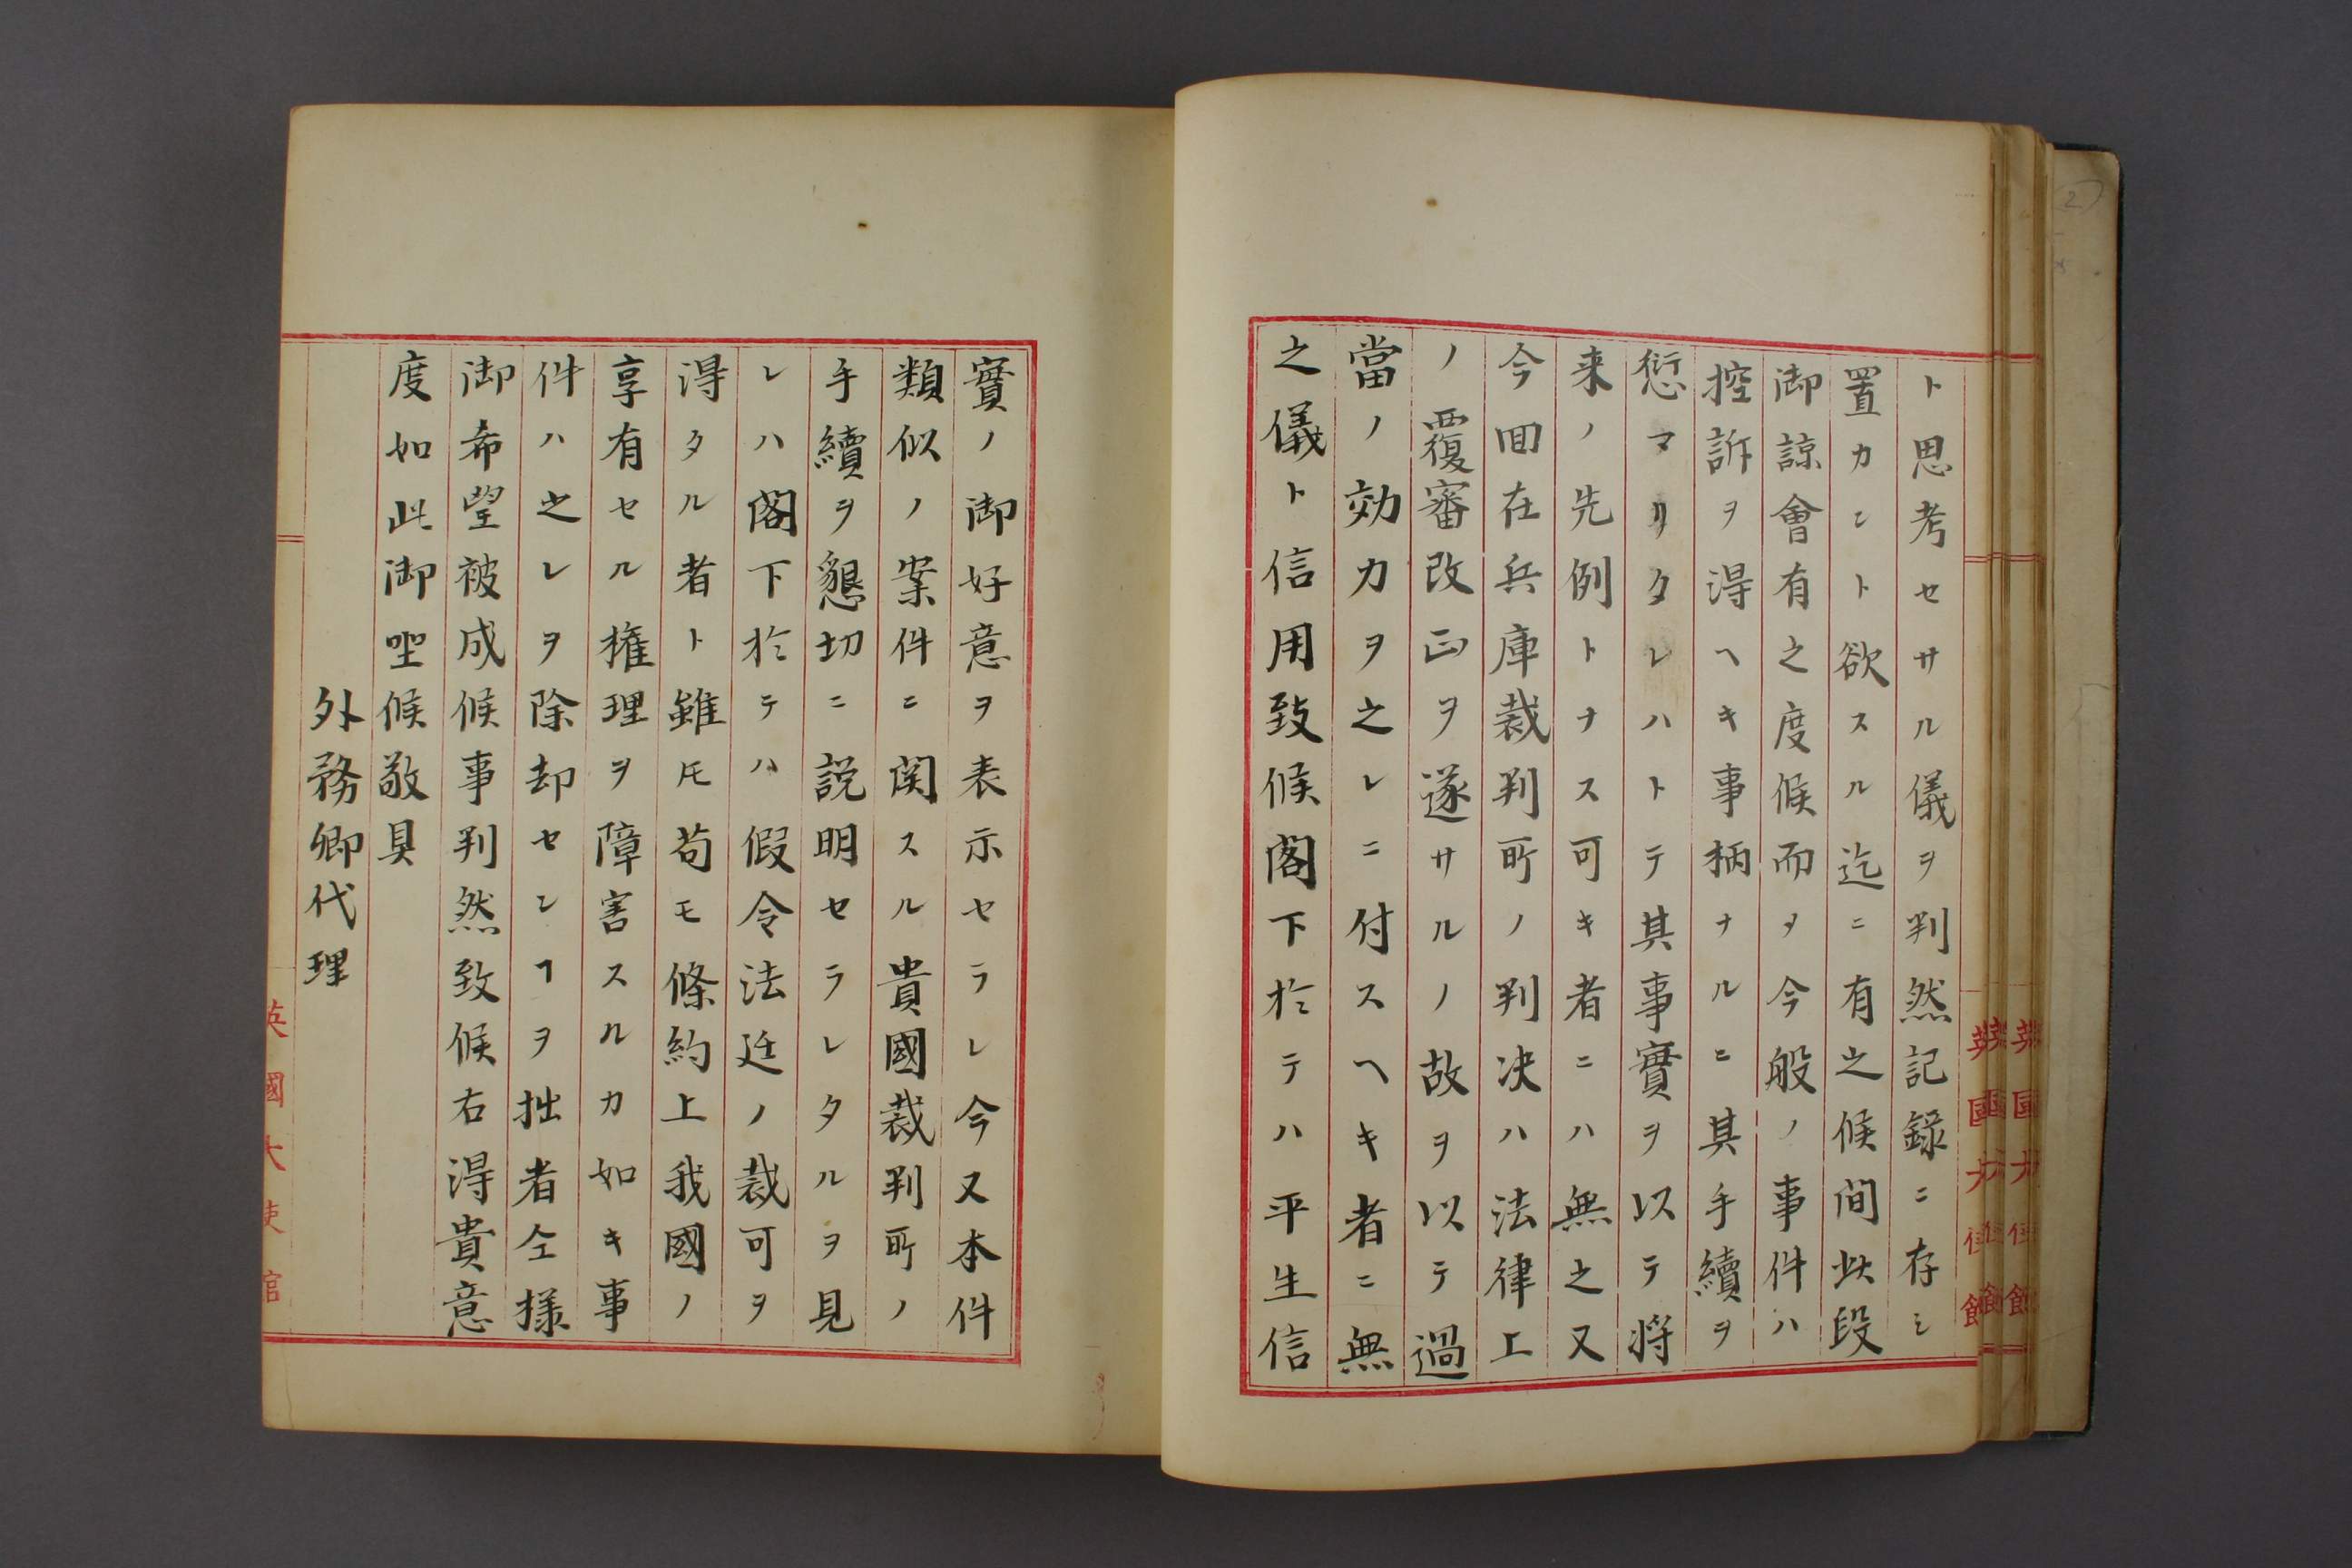 ト思考セサル儀ヲ判然記録ニ存シ
置カント欲スル迄ニ有之候間此段
御諒會有之度候而〆今般ノ事件ハ
控訴ヲ得ヘキ事柄ナルニ其手續ヲ
愆マリタレハトテ其事實ヲ以テ将
来ノ先例トナス可キ者ニハ無之又
今回在兵庫裁判所ノ判决ハ法律上
ノ覆審改正ヲ遂サルノ故ヲ以テ過
當ノ効力ヲ之レニ付スヘキ者ニ無
之儀ト信用致候閣下於テハ平生信
實ノ御好意ヲ表示セラレ今又本件
類似ノ案件ニ関スル貴國裁判所ノ
手續ヲ懇切ニ説明セラレタルヲ見
レハ閣下於テハ假令法廷ノ裁可ヲ
得タル者ト雖𪜈苟モ條約上我國ノ
享有セル権理ヲ障害スルカ如キ事
件ハ之レヲ除却センヿヲ拙者仝様
御希望被成候事判然致候右得貴意
度如此御座候敬具
外務卿代理
英國大使館